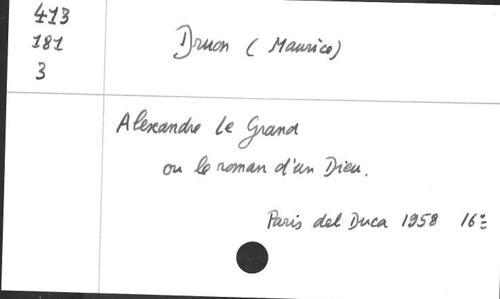 413
181
3
Druon (Maurice)
Alexandre le Grand
ou le roman d'un Dieu.
Paris del Duca 1958 16º